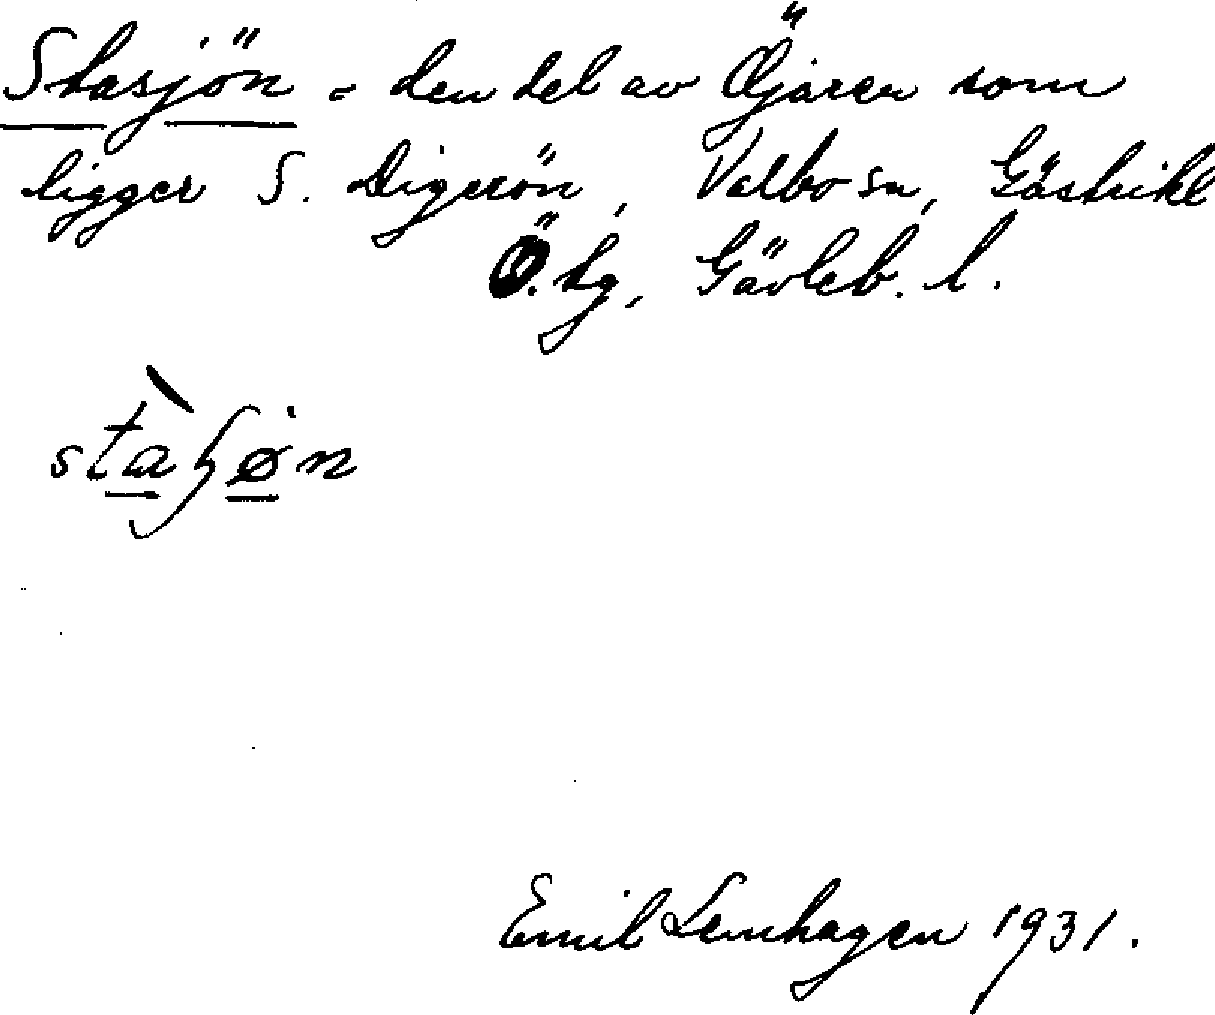 Stasjön = den del av Öjaren som
ligger S. Digerön, Valbo sn, Gästrikl
Ö. tg, Gävleb. l.
stàʃøn
Emil Lemhagen 1931.